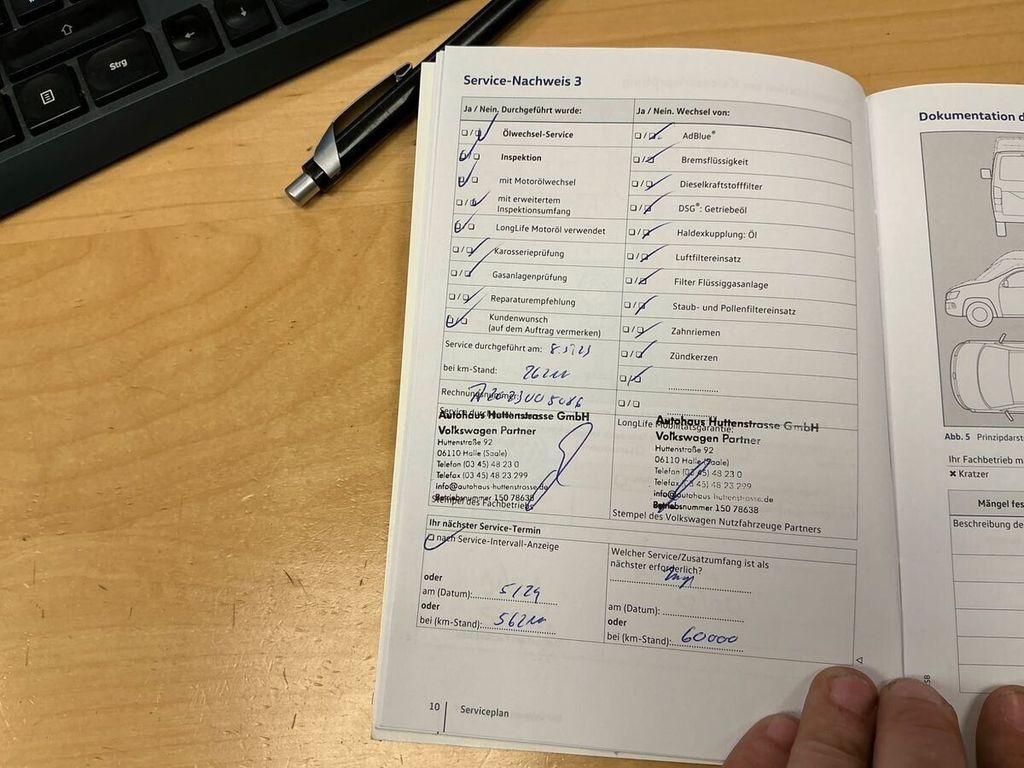 Strg
Service-Nachweis 3
Ja / Nein. Durchgeführt wurde:
Ölwechsel-Service
Inspektion
mit Motorölwechsel
mit erweitertem
Inspektionsumfang
LongLife Motoröl verwendet
Karosserieprüfung
Gasanlagenprüfung
Reparaturempfehlung
Kundenwunsch
(auf dem Auftrag vermerken)
Service durchgeführt am:
bei km-Stand:
Rechnungsnummer:
Autohaus Huttenstrasse GmbH
Volkswagen Partner
Huttenstraße 92
06110 Halle (Saale)
Telefon (03 45) 48 23 0
Telefax (03 45) 48 23 299
info@autohaus-huttenstrasse.de
Betriebsnummer 150 78638
Stempel des Fachbetriebs
Ja / Nein. Wechsel von:
AdBlue®
Bremsflüssigkeit
Dieselkraftstofffilter
DSG®: Getriebeöl
Haldexkupplung: Öl
Luftfiltereinsatz
Filter Flüssiggasanlage
Staub- und Pollenfiltereinsatz
Zahnriemen
Zündkerzen
LongLife Mobilitätsgarantie:
Autohaus Huttenstrasse GmbH
Volkswagen Partner
Huttenstraße 92
06110 Halle (Saale)
Telefon (03 45) 48 23 0
Telefax (03 45) 48 23 299
info@autohaus-huttenstrasse.de
Betriebsnummer 150 78638
Stempel des Volkswagen Nutzfahrzeuge Partners
Ihr nächster Service-Termin
nach Service-Intervall-Anzeige
oder
am (Datum): 5/24
oder
bei (km-Stand):
Welcher Service/Zusatzumfang ist als
nächster erforderlich?
am (Datum):
oder
bei (km-Stand): 60000
10 Serviceplan
Dokumentation d
Abb. 5 Prinzipdarst
Ihr Fachbetrieb m
× Kratzer
Mängel fes
Beschreibung de